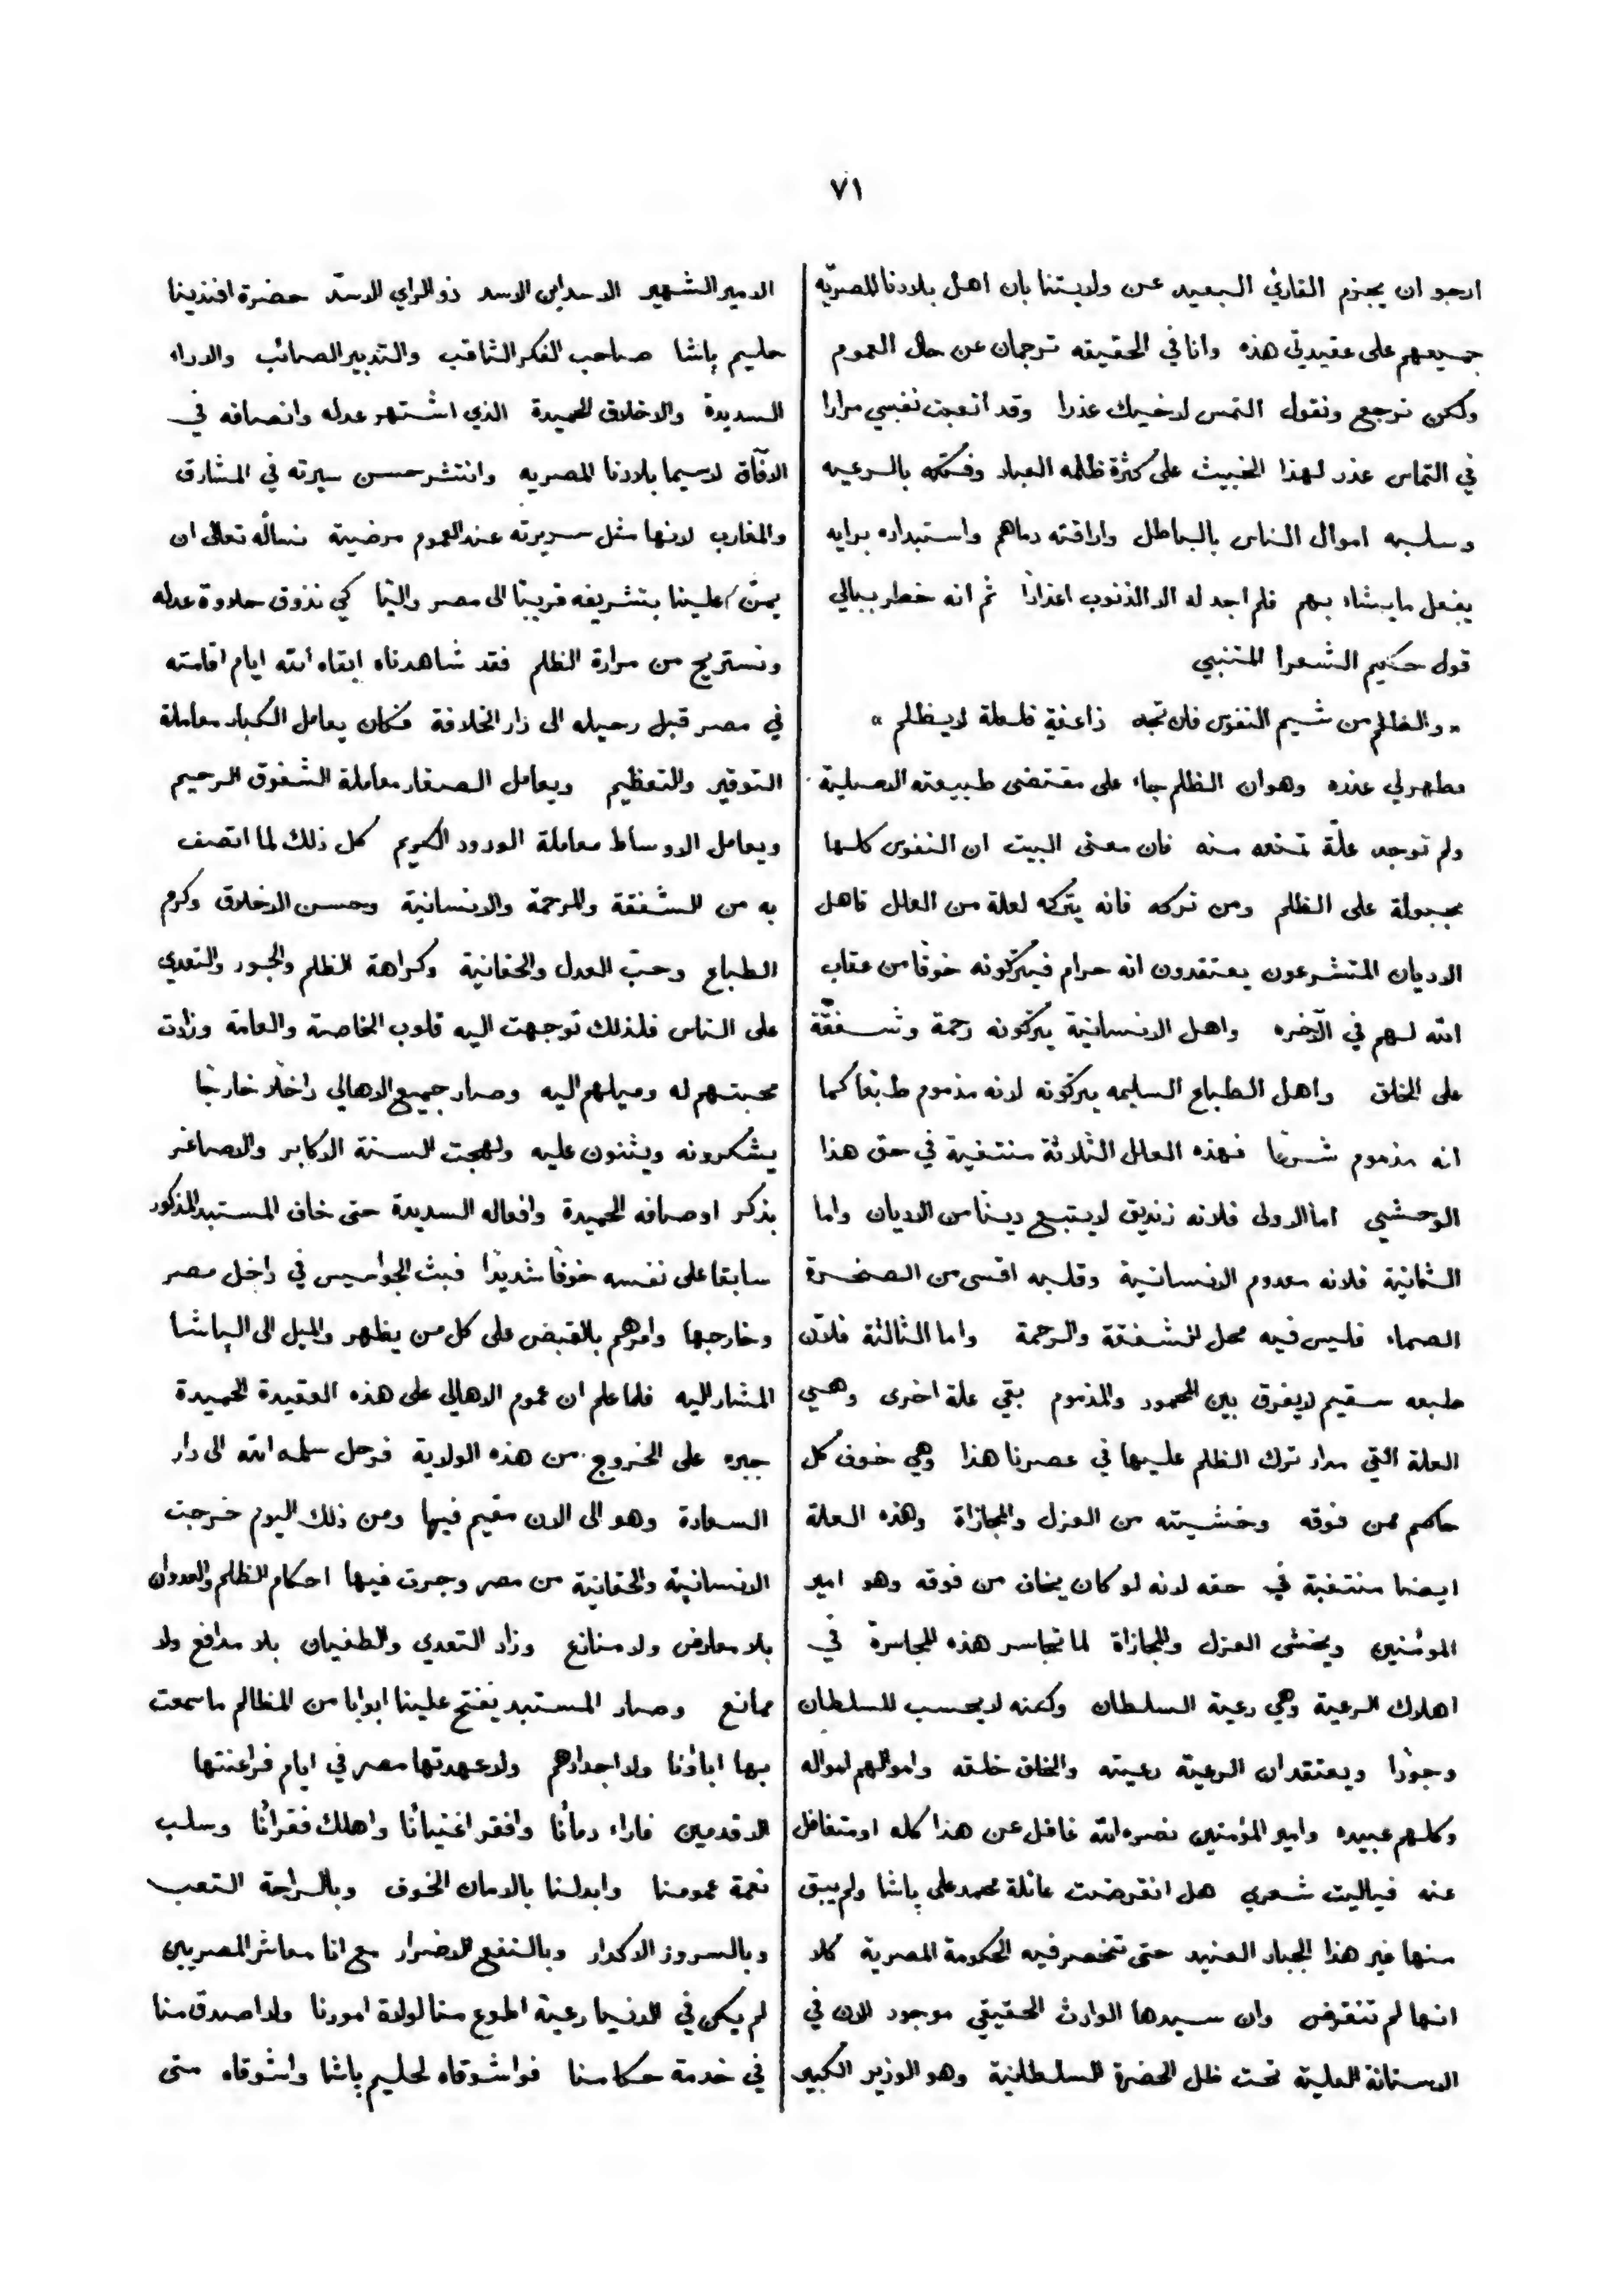 ٧١
ارجو ان يجزم القارئ البعيد عن ولايتنا بان اهل بلادنا المصريّه
جميعهم على عقيدتي هذه وانا في الحقيقه ترجمان عن حال العموم
ولكن نرجع ونقول التمس لاخيك عذرا وقد اتعبت نفسي مرارا
في التماس عذر لهذا الخبيث على كثرة ظلمه العباد وفتكه بالرعيه
وسلبه اموال الناس بالباطل واراقته دماهم واستبداده برايه
يفعل مايشاء بهم فلم اجد له الا الذنوب اعذارًا ثم انه خطر ببالي
قول حكيم الشعرا المتنبي
« والظلم من شيم النفوس فان تجد ذا عفية فلعلة لا يظلم »
فظهر لي عذره وهو ان الظلم جاء على مقتضى طبيعته الاصلية
ولم توجد علّة تمنعه منه فان معنى البيت ان النفوس كلها
مجبولة على الظلم ومن تركه فانه يتركه لعلة من العلل فاهل
الاديان المتشرعون يعتقدون انه حرام فيتركونه خوفًا من عقاب
الله لهم في الآخره واهل الانسانية يتركونه رحمة وشفقّة
على الخلق واهل الطباع السليمه يتركونه لانه مذموم طبعًا كما
انه مذموم شرعًا فهذه العلل الثلاثة منتفية في حق هذا
الوحشي اما الاولى فلانه زنديق لا يتبع دينًا من الاديان واما
الثانية فلانه معدوم الانسانية وقلبه اقسى من الصخرة
الصماء فليس فيه محل للشفقة والرحمة واما الثالثة فلان
طبعه سقيم لا يفرق بين المحمود والمذموم بقي علة اخرى وهي
العلة التي مدار ترك الظلم عليها في عصرنا هذا وهي خوف كل
حاكم ممن فوقه وخشيته من العزل والمجازاة وهذه العلة
ايضا منتفية في حقه لانه لو كان يخاف من فوقه وهو امير
المومنين ويخشى العزل والمجازاة لما تجاسر هذه المجاسرة في
اهلاك الرعية وهي رعية السلطان ولكنه لا يحسب للسلطان
وجودًا ويعتقد ان الرعية رعيته والخلق خلقه واموالهم امواله
وكلهم عبيده وامير المؤمنين نصره الله غافل عن هذا كله او متغافل
عنه فياليت شعري هل انقرضت عائلة محمد علي باشا ولم يبق
منها غير هذا الجبار العنيد حتى تنحصر فيه الحكومة المصرية كلا
انها لم تنقرض وان سيدها الوارث الحقيقي موجود الان في
الاستانة العلية تحت ظل الحضرة السلطانية وهو الوزير الكبير
الامير الشهير الاسد ابن الاسد ذو الراي الاسدّ حضرة افندينا
حليم باشا صاحب الفكر الثاقب والتدبير الصائب والاراء
السديدة والاخلاق الحميدة الذي اشتهر عدله وانصافه في
الافآق لاسيما بلادنا المصريه وانتشر حسن سيرته في المشارق
والمغارب لانها مثل سريرته عند العموم مرضية نسأله تعالى ان
يمنّ علينا بتشريفه قريبًا الى مصر واليًا كي نذوق حلاوة عدله
ونستريح من مرارة الظلم فقد شاهدناه ابقاه الله ايام اقامته
في مصر قبل رحيله الى دار الخلافة فكان يعامل الكبار معاملة
التوقير والتعظيم ويعامل الصغار معاملة الشفوق الرحيم
ويعامل الاوساط معاملة الودود الكريم كل ذلك لما اتصف
به من الشفقة والرحمة والانسانية وحسن الاخلاق وكرم
الطباع وحبّ العدل والحقانية وكراهة الظلم والجور والتعدي
على الناس فلذلك توجهت اليه قلوب الخاصة والعامة وزادت
محبتهم له وميلهم اليه وصار جميع الاهالي داخلا خارجًا
يشكرونه ويثنون عليه ولهجت السنة الاكابر والاصاغر
بذكر اوصافه الحميدة وافعاله السديدة حتى خاف المستبد المذكور
سابقا على نفسه خوفًا شديدًا فبث الجواسيس في داخل مصر
وخارجها وامرهم بالقبض على كل من يظهر والميل الى الباشا
المشار اليه فلما علم ان عموم الاهالي على هذه العقيدة الحميدة
جبره على الخروج من هذه الولاية فرحل سلمه الله الى دار
السعادة وهو الى الان مقيم فيها ومن ذلك اليوم خرجت
الانسانية والحقانية من مصر وجرت فيها احكام الظلم والعدوان
بلا معارض ولا منازع وزاد التعدي والطغيان بلا مدافع ولا
ممانع وصار المستبد يفتح علينا ابوابا من المظالم ما سمعت
بها اباؤنا ولا اجدادهم ولا عهدتها مصر في ايام فراعنتها
الاقدمين فاراء دمأنا وافقر اغنيأنا واهلك فقرأنا وسلب
نعمة عمومنا وابدلنا بالامان الخوف وبالراحة التعب
وبالسرور الاكدار وبالنفع الاضرار مع انا معاشر المصريين
لم يكن في الدنيا رعية اطوع منا لولاة امورنا ولا اصدق منا
في خدمة حكامنا فواشوقاه لحليم باشا واشوقاه متى